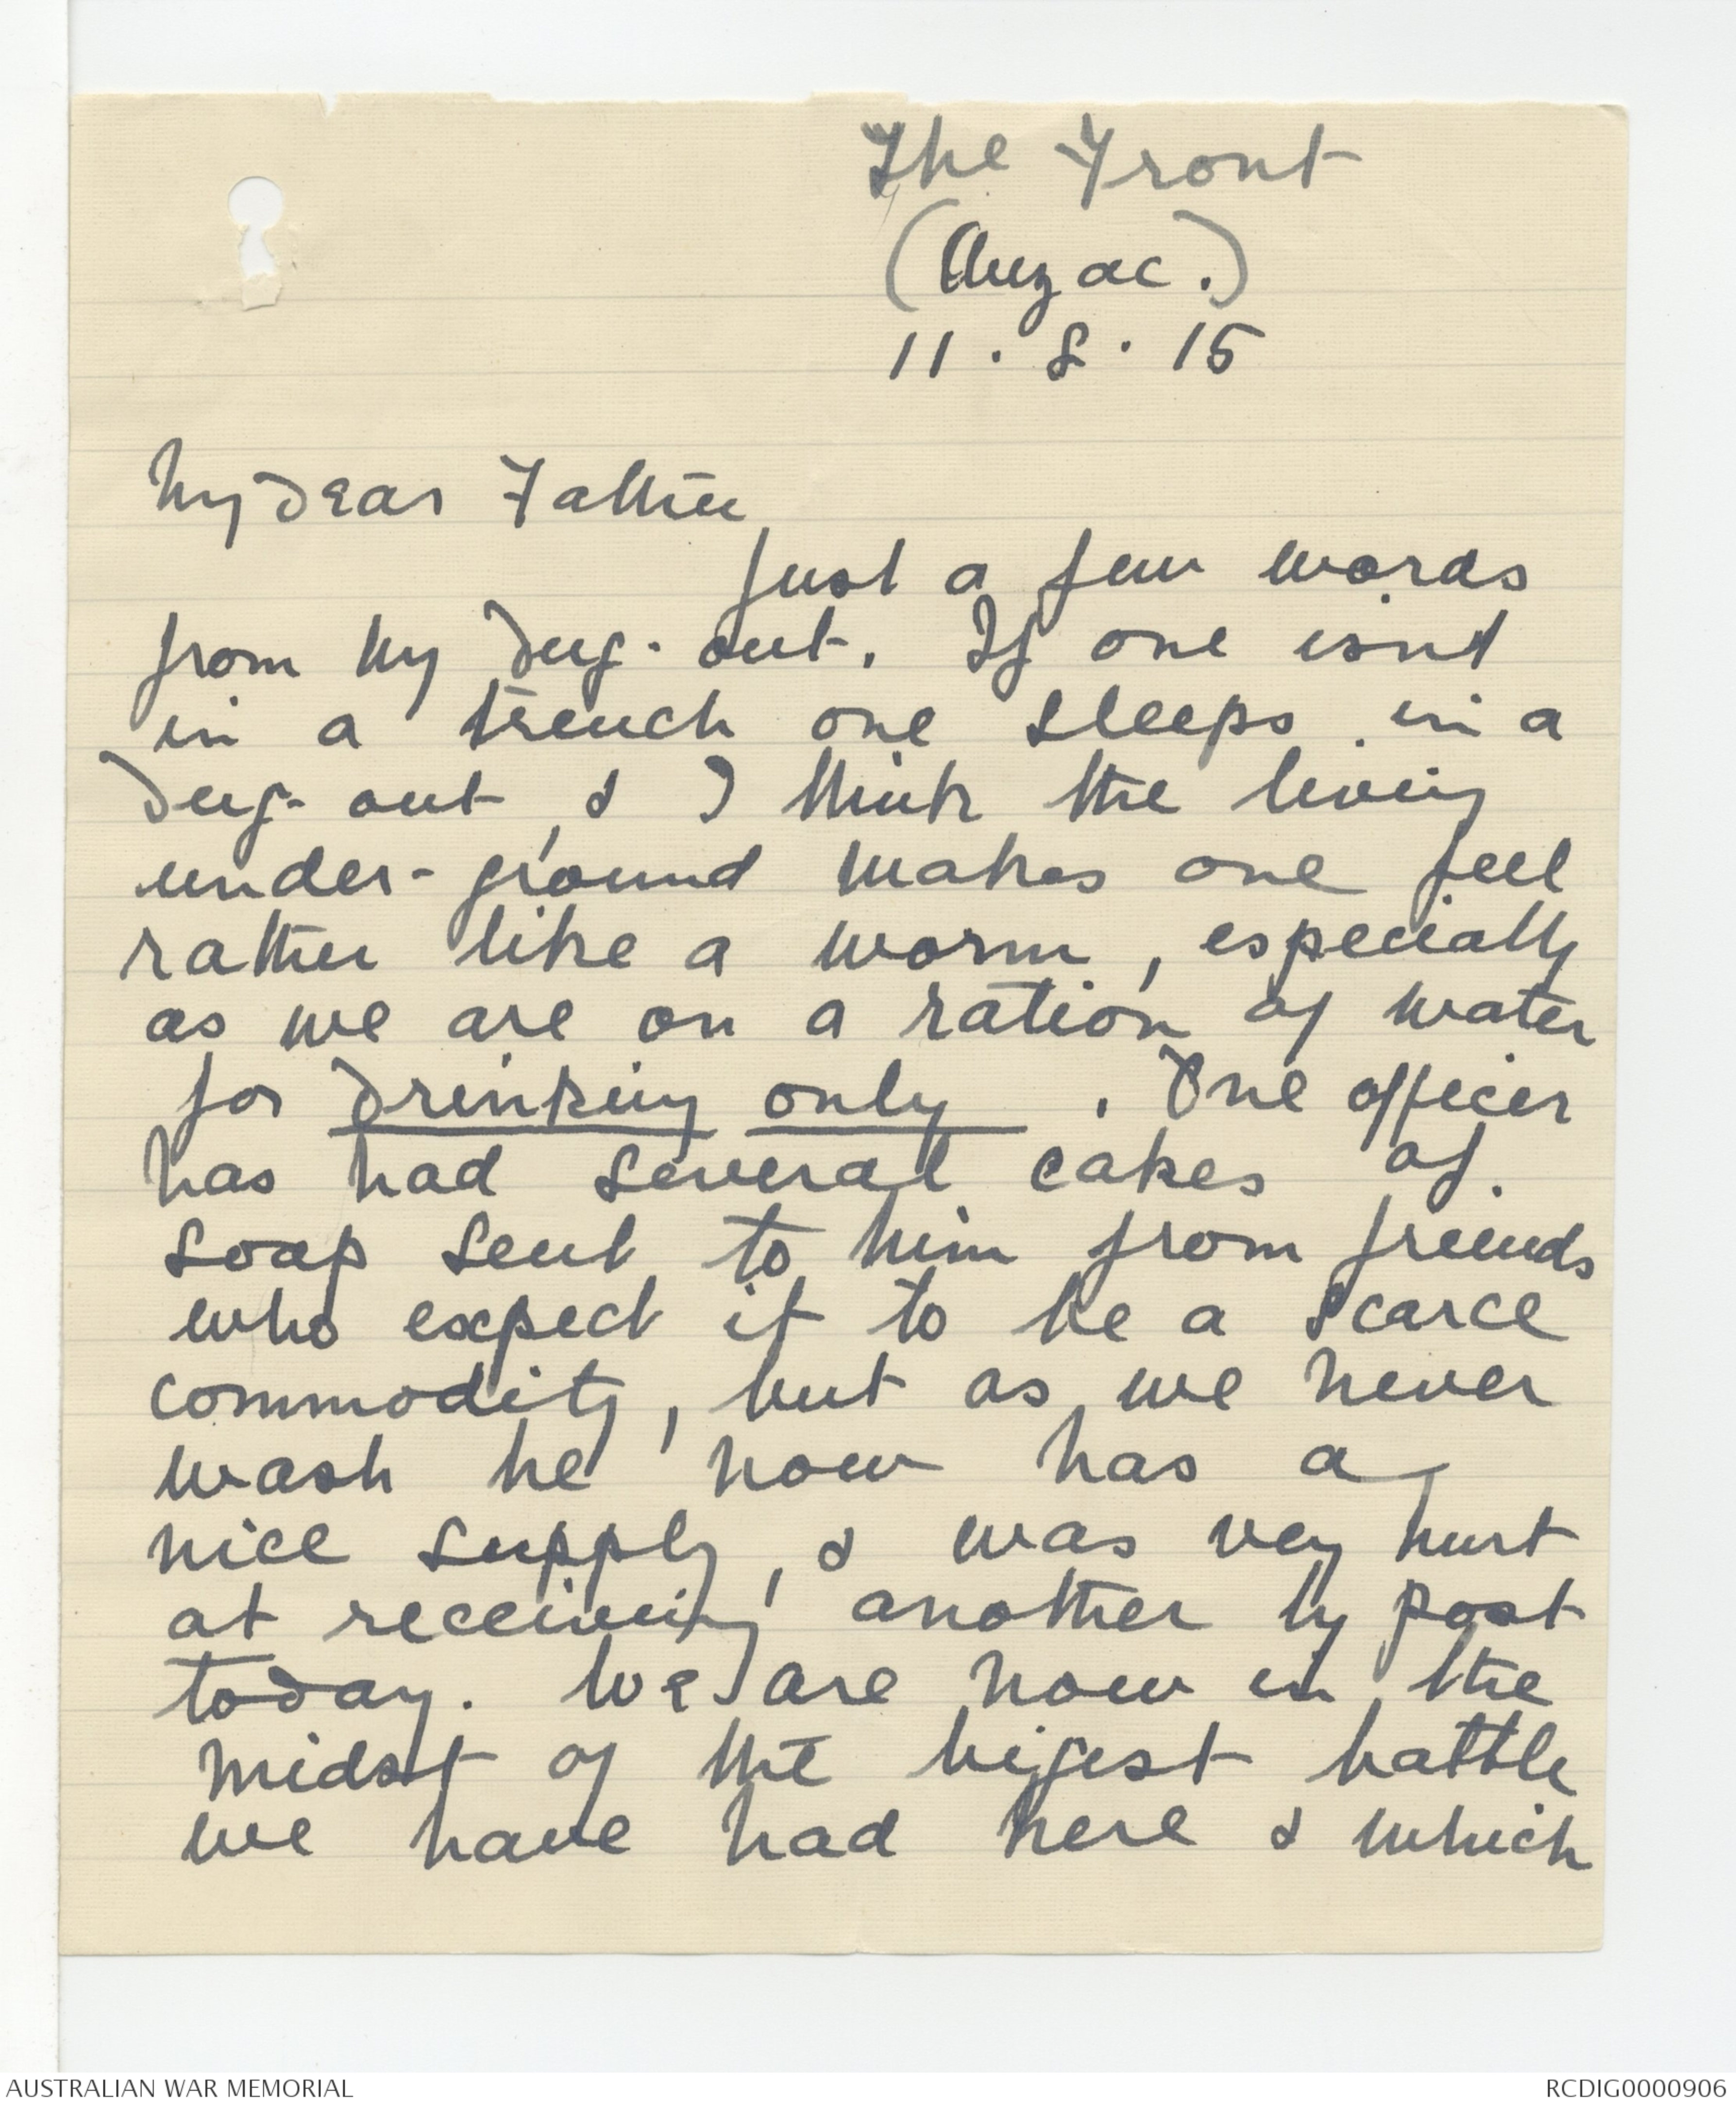 The Front
(Anzac.)
11. 8. 15
My dear Father
Just a few words
from my dug-out. If one isnt
in a trench one sleeps in a
dug-out, & I think the living
under-ground makes one feel
rather like a worm, especially
as we are on a ration of water
for drinking only. One officer
has had several cakes of
soap sent to him from friends
who expect it to be a scarce
commodity, but as we never
wash he now has a
nice supply, & was very hurt
at receiving another by post
today. We are now in the
midst of the bigest battle
we have had here & which
AUSTRALIAN WAR MEMORIAL
RCDIG0000906